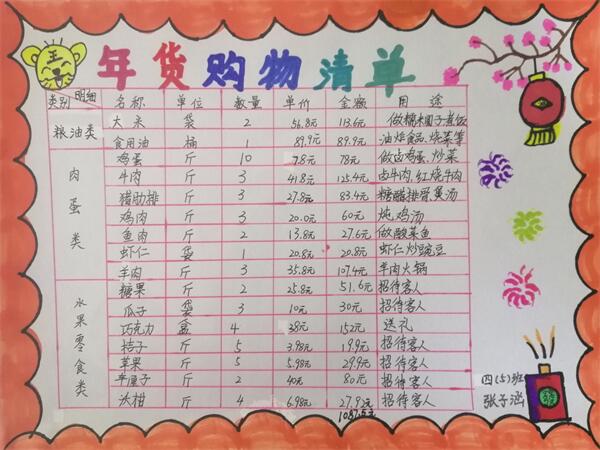 年货购物清单
类别 明细 名称 单位 数量 单价 金额 用途
粮油类 大米 袋 2 56.8元 113.6元 做糯米圆子煮饭
食用油 桶 1 89.9元 89.9元 油炸食品,烧菜等
肉蛋类 鸡蛋 斤 10 7.8元 78元 做卤鸡蛋,炒菜
牛肉 斤 3 41.8元 125.4元 卤牛肉,红烧牛肉
猪肋排 斤 3 27.8元 83.4元 糖醋排骨,煲汤
鸡肉 斤 3 20.0元 60元 炖鸡汤
鱼肉 斤 2 13.8元 27.6元 做酸菜鱼
虾仁 袋 1 20.8元 20.8元 虾仁炒豌豆
羊肉 斤 3 35.8元 107.4元 羊肉火锅
水果零食类 糖果 斤 2 25.8元 51.6元 招待客人
瓜子 袋 3 10元 30元 招待客人
巧克力 盒 4 38元 152元 送礼
桔子 斤 5 3.98元 19.9元 招待客人
苹果 斤 5 5.98元 29.9元 招待客人
车厘子 斤 2 40元 80元 招待客人
沃柑 斤 4 6.98元 27.92元 招待客人
四(5)班
张子涵